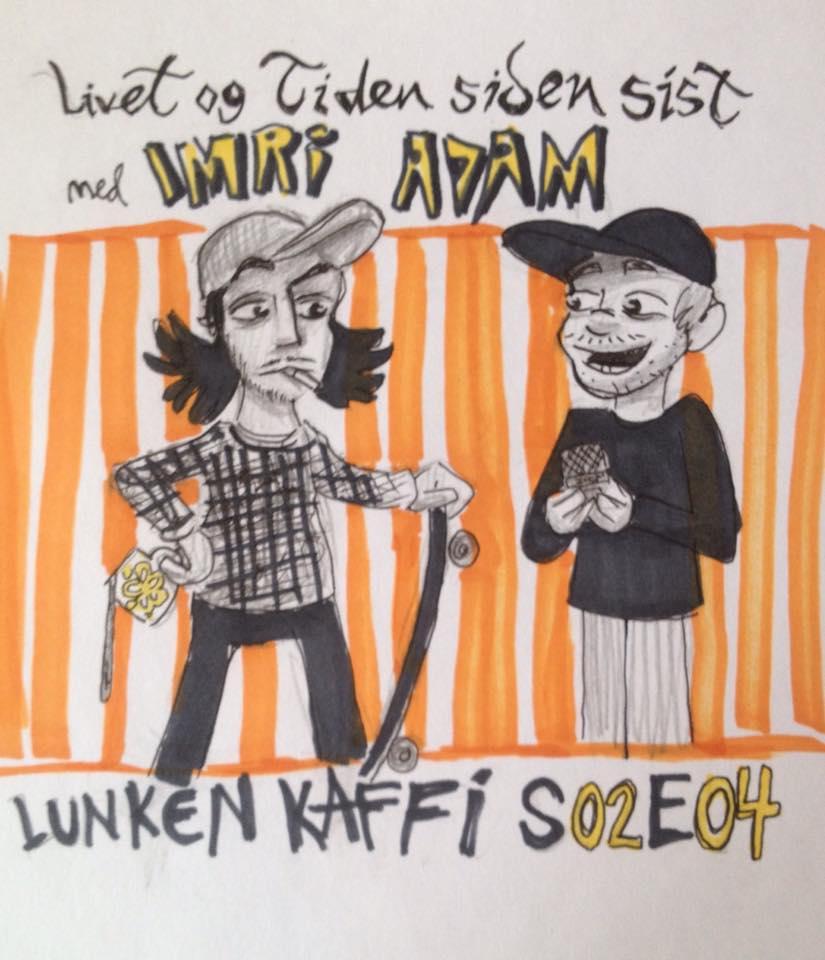 Livet og Tiden siden sist
med IMRi ADAM
LUNKEN KAFFi S02E04